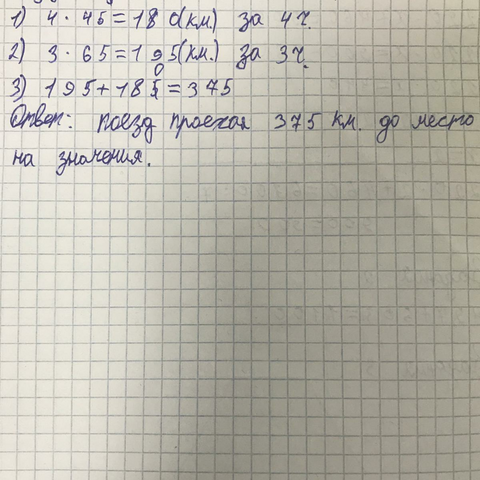 1) 4 · 45 = 180 (км.) за 4 ч.
2) 3 · 65 = 195 (км.) за 3 ч.
3) 195 + 180 = 375
Ответ: поезд проехал 375 км. до место
на значения.